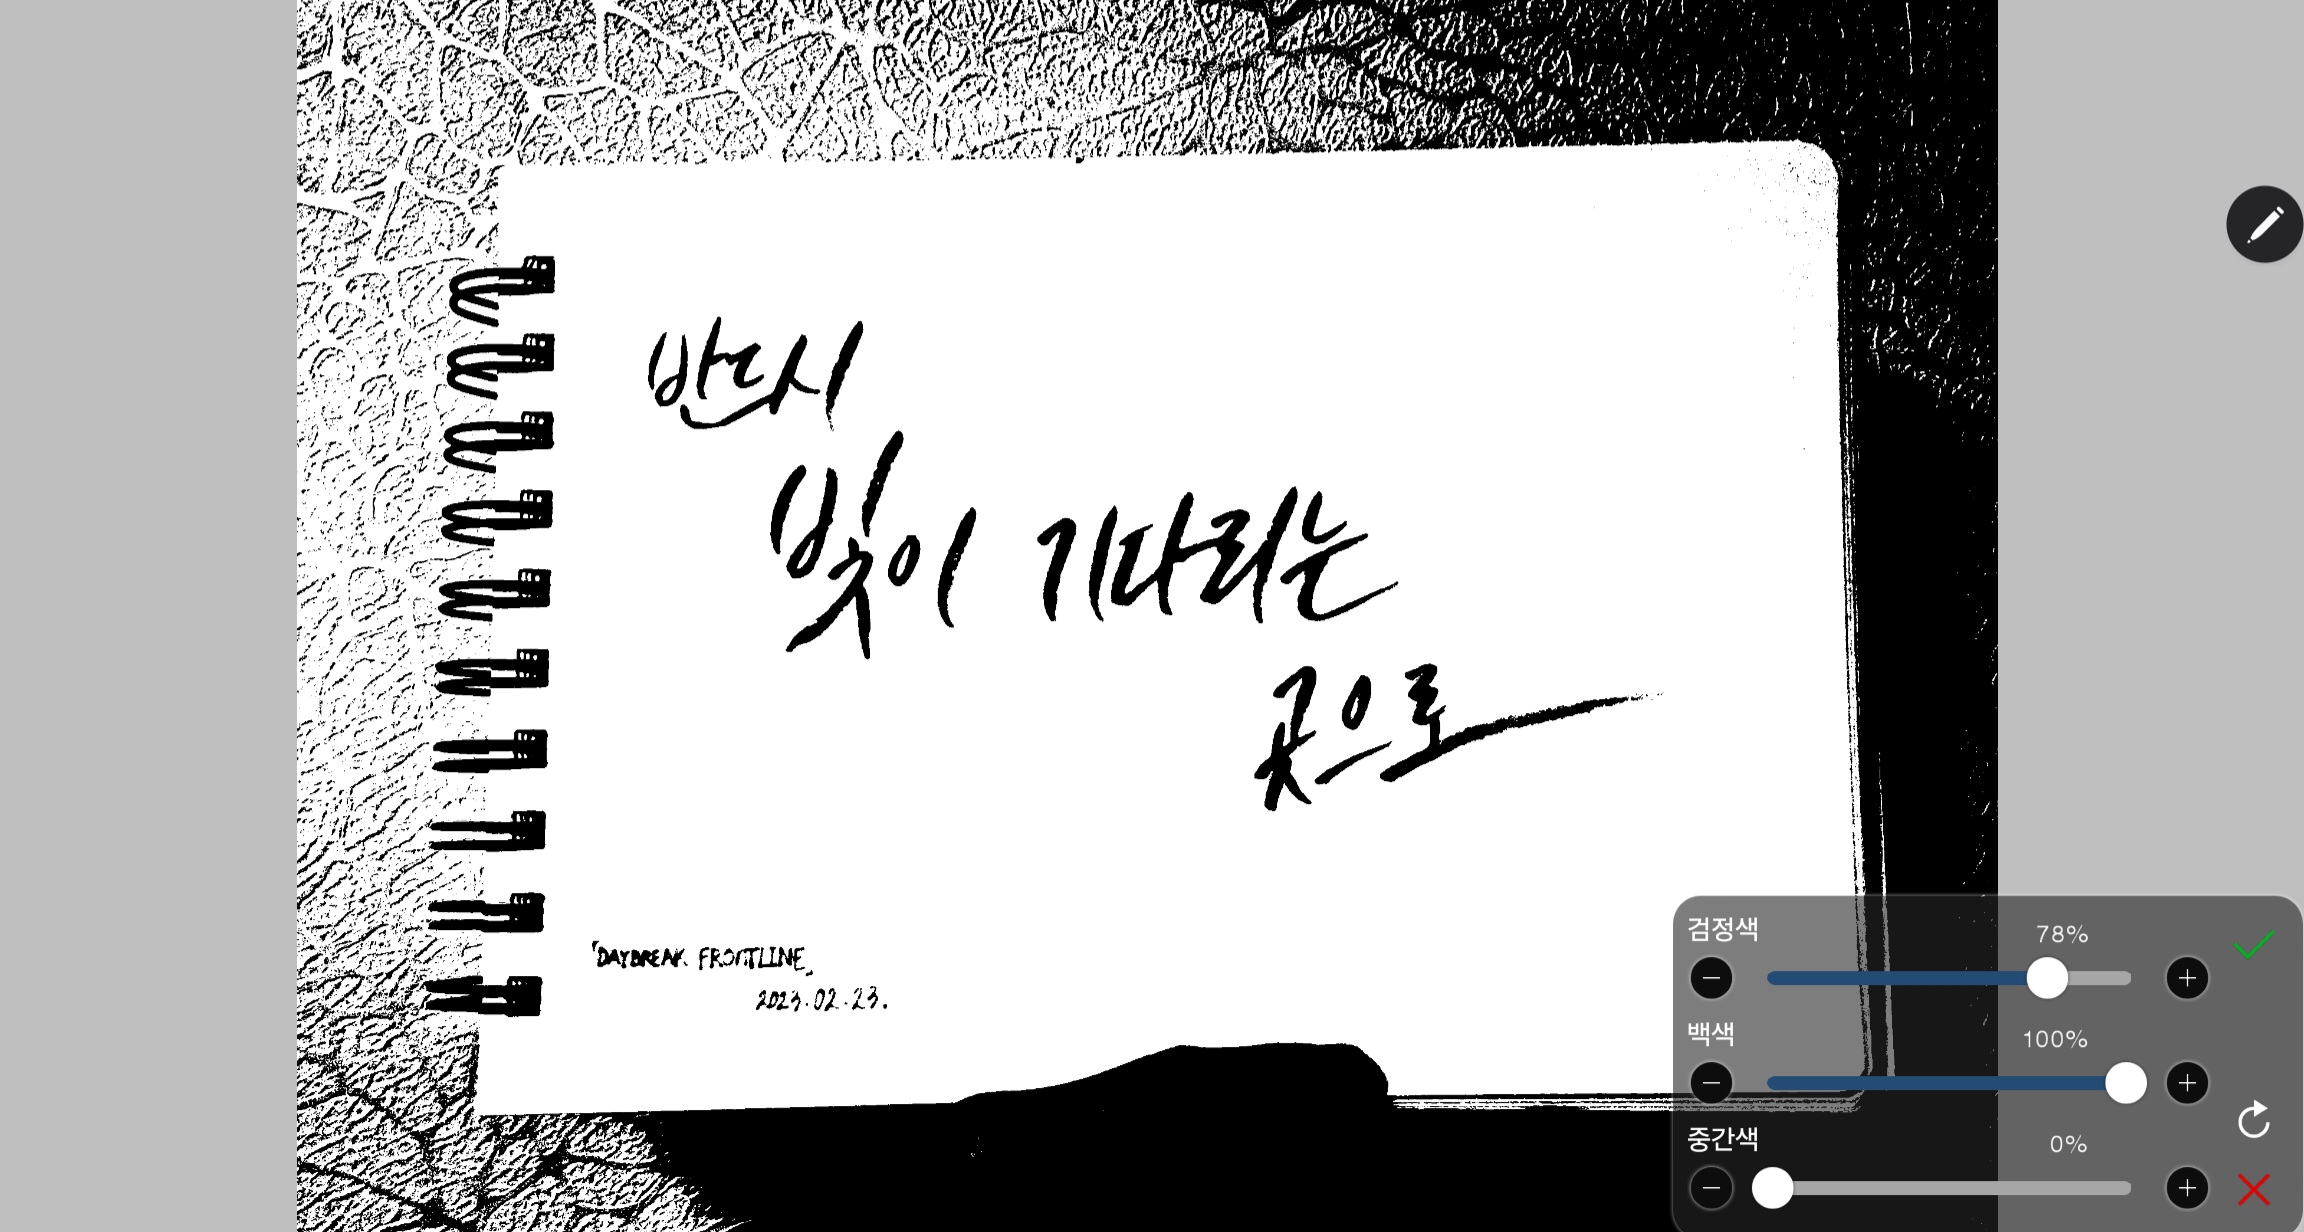 반드시
빛이 기다리는
곳으로
「DAYBREAK FRONTLINE」
2023.02.23.
검정색 78%
백색 100%
중간색 0%